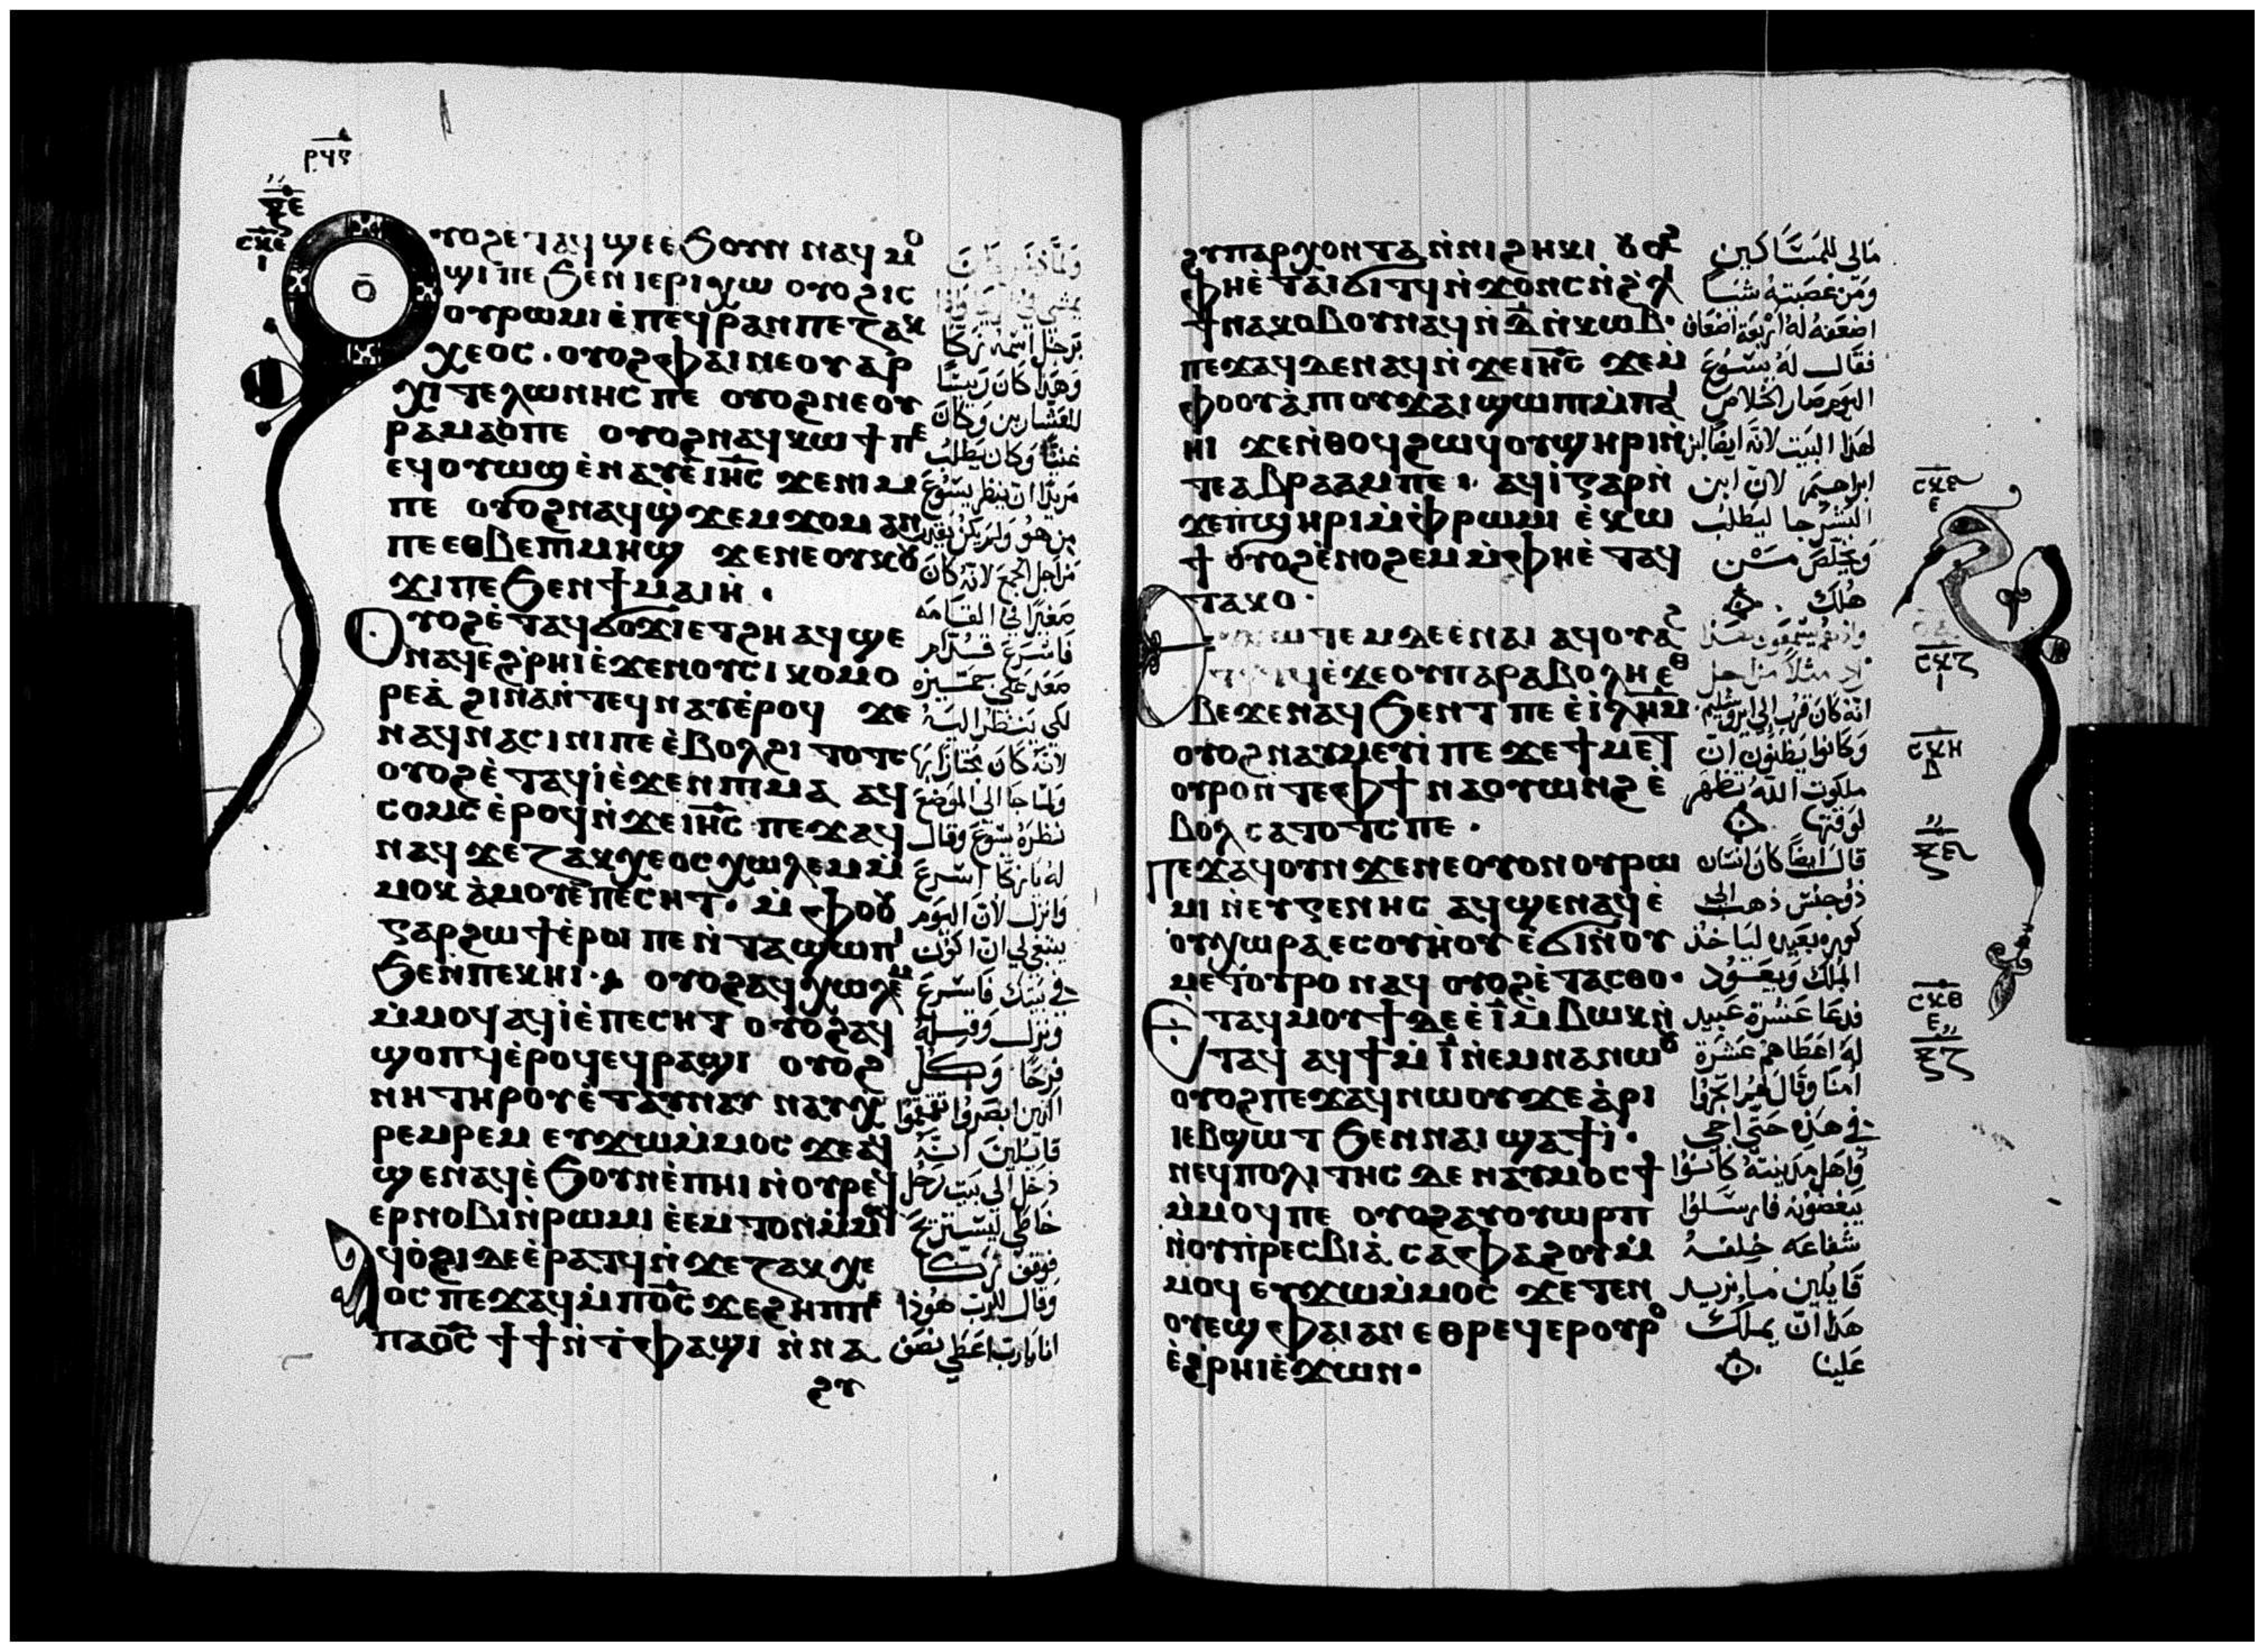 ⲣϥⲋ
ⲝⲉ
ⲥⲕⲉ
ⲓ
ⲟⲩⲟϩ ⲉⲧⲁϥϣⲉ ⲉϧⲟⲩⲛ ⲛⲁϥⲙⲟ
ϣⲓ ⲡⲉ ϧⲉⲛ ⲓⲉⲣⲓⲭⲱ ⲟⲩⲟϩ ⲓⲥ
ⲟⲩⲣⲱⲙⲓ ⲉ̀ⲡⲉϥⲣⲁⲛ ⲡⲉ ⲍⲁⲕ
ⲭⲉⲟⲥ · ⲟⲩⲟϩ ⲫⲁⲓ ⲛⲉ ⲟⲩⲁⲣ
ⲭⲓⲧⲉⲗⲱⲛⲏⲥ ⲡⲉ ⲟⲩⲟϩ ⲛⲉ ⲟⲩ
ⲣⲁⲙⲁⲟ̀ ⲡⲉ ⲟⲩⲟϩ ⲛⲁϥⲕⲱϯ ⲡⲉ
ⲉϥⲟⲩⲱϣ ⲉ̀ⲛⲁⲩ ⲉ̀ⲓⲏ̅ⲥ̅ ϫⲉ ⲛⲓⲙ
ⲡⲉ ⲟⲩⲟϩ ⲛⲁϥϣ̀ϫⲉⲙϫⲟⲙ ⲁⲛ
ⲡⲉ ⲉⲑⲃⲉ ⲡⲓⲙⲏϣ ϫⲉ ⲛⲉ ⲟⲩⲕⲟⲩ
ϫⲓ ⲡⲉ ϧⲉⲛ ϯⲙⲁⲓⲏ̀ ·
ⲟⲩⲟϩ ⲉ̀ⲧⲁϥϭⲟϫⲓ ⲉⲧϩⲏ ⲁϥϣⲉ
ⲛⲁϥ ⲉ̀ϩ̀ⲣⲏⲓ ⲉ̀ϫⲉⲛ ⲟⲩⲥⲓⲕⲟⲙⲟ
ⲣⲉⲁ̀ ϩⲓⲛⲁ ⲛ̀ⲧⲉϥⲛⲁⲩ ⲉ̀ⲣⲟϥ ϫⲉ
ⲛⲁϥⲛⲁⲥⲓⲛⲓ ⲡⲉ ⲉ̀ⲃⲟⲗ ϩⲓⲧⲟⲧⲥ
ⲟⲩⲟϩ ⲉ̀ⲧⲁϥⲓ̀ ⲉ̀ϫⲉⲛ ⲡⲓⲙⲁ ⲁϥ
ⲥⲟⲙⲥ ⲉ̀ⲣⲟϥ ⲛ̀ϫⲉ ⲓⲏ̅ⲥ̅ ⲡⲉϫⲁϥ
ⲛⲁϥ ϫⲉ ⲍⲁⲕⲭⲉⲟⲥ ⲭⲱⲗⲉⲙ ⲙ̀
ⲙⲟⲕ ⲁ̀ⲙⲟⲩ ⲉ̀ⲡⲉⲥⲏⲧ · ⲙ̀ⲫⲟⲟⲩ
ⲅⲁⲣ ϩⲱϯ ⲉ̀ⲣⲟⲓ ⲡⲉ ⲛ̀ⲧⲁϣⲱⲡⲓ
ϧⲉⲛ ⲡⲉⲕⲏⲓ · ⲟⲩⲟϩ ⲁϥⲭⲱⲗⲉⲙ
ⲙ̀ⲙⲟϥ ⲁϥⲓ̀ ⲉ̀ⲡⲉⲥⲏⲧ ⲟⲩⲟϩ ⲁϥ
ϣⲟⲡϥ ⲉ̀ⲣⲟϥ ⲉϥⲣⲁϣⲓ ⲟⲩⲟϩ
ⲛⲏ ⲧⲏⲣⲟⲩ ⲉ̀ⲧⲁⲩⲛⲁⲩ ⲛⲁⲩⲭ
ⲣⲉⲙⲣⲉⲙ ⲉⲩϫⲱ ⲙ̀ⲙⲟⲥ ϫⲉ ⲁϥ
ϣⲉ ⲛⲁϥ ⲉ̀ϧⲟⲩⲛ ⲉ̀ⲡⲏⲓ ⲛ̀ⲟⲩⲣⲉϥ
ⲉⲣⲛⲟⲃⲓ ⲛ̀ⲣⲱⲙⲓ ⲉ̀ⲙ̀ⲧⲟⲛ ⲙ̀ⲙⲟϥ
ⲁϥⲟ̀ϩⲓ ⲇⲉ ⲉ̀ⲣⲁⲧϥ ⲛ̀ϫⲉ ⲍⲁⲕⲭⲉ
ⲟⲥ ⲡⲉϫⲁϥ ⲙ̀ⲡⲟ̅ⲥ̅ ϫⲉ ϩⲏⲡⲡⲉ
ⲡⲁⲟ̅ⲥ̅ ϯϯ ⲛ̀ⲧ̀ⲫⲁϣⲓ ⲛ̀ⲛⲁ
ϩⲩ
برجل اسمه زكا
وهذا كان رييسًا
للعشارين وكان
غنيًّا وكان يطلب
مريدًا ان ينظر يسوع
من هو ولم يكن يقدر
من اجل الجمع لانه كان
فاسرع قدام
صعد على جميزه
لكي ينظر اليه
لانه كان مجتازًا بها
ولما جا الى الموضع
نظره يسوع وقال
له يا زكا اسرع
وانزل لان اليوم
ينبغي لي ان اكون
في بيتك فاسرع
ونزل وقبله
فرحًا وكل
الذين ابصروا تقمقموا
قايلين انه
دخل الى بيت رجل
خاطي ليستريح
فوقف زكا
وقال للرب هوذا
انا يا رب اعطي نصف
ϩⲩⲡⲁⲣⲭⲟⲛⲧⲁ ⲛ̀ⲛⲓϩⲏⲕⲓ ⲟⲩⲟϩ
ⲫⲏ ⲉ̀ⲧⲁⲓϭⲓⲧϥ ⲛ̀ϫⲟⲛⲥ ⲛ̀ϩ̀ⲗⲓ
ϯⲛⲁⲕⲟⲃⲟⲩ ⲛⲁϥ ⲛ̀ⲇ̅ ⲛ̀ⲕⲱⲃ ·
ⲡⲉϫⲁϥ ⲇⲉ ⲛⲁϥ ⲛ̀ϫⲉ ⲓⲏ̅ⲥ̅ ϫⲉ ⲙ̀
ⲫⲟⲟⲩ ⲁ̀ ⲡⲓⲟⲩϫⲁⲓ ϣⲱⲡⲓ ⲙ̀ⲡⲁⲓ
ⲏⲓ ϫⲉ ⲛ̀ⲑⲟϥ ϩⲱϥ ⲟⲩϣⲏⲣⲓ ⲛ̀
ⲧⲉ ⲁⲃⲣⲁⲁⲙ ⲡⲉ · ⲁϥⲓ̀ ⲅⲁⲣ ⲛ̀
ϫⲉ ⲡ̀ϣⲏⲣⲓ ⲙ̀ⲫⲣⲱⲙⲓ ⲉ̀ⲕⲱ
ϯ ⲟⲩⲟϩ ⲉ̀ⲛⲟϩⲉⲙ ⲙ̀ⲫⲏ ⲉ̀ⲧⲁϥ
ⲧⲁⲕⲟ ·
ⲇⲉ ⲉ̀ⲛⲁⲓ ⲁϥⲟⲩⲁϩ
ϫⲉ ⲟⲩⲡⲁⲣⲁⲃⲟⲗⲏ ⲉⲑ
ⲃⲉ ϫⲉ ⲛⲁϥϧⲉⲛⲧ ⲡⲉ ⲉ̀ⲓ̅ⲗ̅ⲏ̅ⲙ̅
ⲟⲩⲟϩ ⲛⲁⲩⲙⲉⲩⲓ̀ ⲡⲉ ϫⲉ ϯⲙⲉⲧ
ⲟⲩⲣⲟ ⲛ̀ⲧⲉ ⲫϯ ⲛⲁⲟⲩⲱⲛϩ ⲉ̀
ⲃⲟⲗ ⲥⲁⲧⲟⲧⲥ ⲡⲉ ·
ⲡⲉϫⲁϥ ⲟⲩⲛ ϫⲉ ⲛⲉ ⲟⲩⲟⲛ ⲟⲩⲣⲱ
ⲙⲓ ⲛ̀ⲉⲩⲅⲉⲛⲏⲥ ⲁϥϣⲉ ⲛⲁϥ ⲉ̀
ⲟⲩⲭⲱⲣⲁ ⲉⲥⲟⲩⲏ̀ⲟⲩ ⲉ̀ϭⲓ ⲛ̀ⲟⲩ
ⲙⲉⲧⲟⲩⲣⲟ ⲛⲁϥ ⲟⲩⲟϩ ⲉ̀ⲧⲁⲥⲑⲟ ·
ⲉ̀ⲧⲁϥⲙⲟⲩϯ ⲇⲉ ⲉ̀ⲓ̅ ⲙ̀ⲃⲱⲕ ⲛ̀
ⲧⲁϥ ⲁϥϯ ⲙ̀ⲓ̅ ⲛ̀ⲉⲙⲛⲁ ⲛⲱⲟⲩ
ⲟⲩⲟϩ ⲡⲉϫⲁϥ ⲛⲱⲟⲩ ϫⲉ ⲁ̀ⲣⲓ
ⲓⲉⲃϣⲱⲧ ϧⲉⲛ ⲛⲁⲓ ϣⲁϯⲓ̀ ·
ⲛⲉϥⲡⲟⲗⲓⲧⲏⲥ ⲇⲉ ⲛⲁⲩⲙⲟⲥϯ
ⲙ̀ⲙⲟϥ ⲡⲉ ⲟⲩⲟϩ ⲁⲩⲟⲩⲱⲣⲡ
ⲛ̀ⲟⲩⲡ̀ⲣⲉⲥⲃⲓⲁ̀ ⲥⲁⲫⲁϩⲟⲩ ⲙ̀
ⲙⲟϥ ⲉⲩϫⲱ ⲙ̀ⲙⲟⲥ ϫⲉ ⲧⲉⲛ
ⲟⲩⲉϣ ⲫⲁⲓ ⲁⲛ ⲉⲑⲣⲉϥⲉⲣⲟⲩⲣⲟ
ⲉ̀ϩ̀ⲣⲏⲓ ⲉ̀ϫⲱⲛ ·
مالى للمساكين
ومن غصبته شيا
اضعفه له اربعة اضعاف
فقال له يسوع
اليوم صار الخلاص
لهذا البيت لانه ايضًا ابن
ابراهيم لان ابن
البشر جا ليطلب
ويخلص من
هلك
انه كان قرب الى ايروشليم
وكانوا يظنون ان
ملكوت الله تظهر
لوقتها
قال ايضًا كان انسان
ذو جنس ذهب الى
كوره بعيده لياخذ
الملك ويعود
فدعا عشرة عبيد
له اعطاهم عشرة
امنا وقال لهم اتجروا
في هذه حتى اجي
واهل مدينته كانوا
يبغضونه فارسلوا
شفاعه خلفه
قايلين ما نريد
هذا ان يملك
علينا
ⲥⲕⲋ
ⲉ
ⲥⲕⲍ
ⲓ
ⲥⲕⲏ
ⲇ
ⲝⲋ
ⲥⲕⲑ
ⲉ
ⲝⲍ